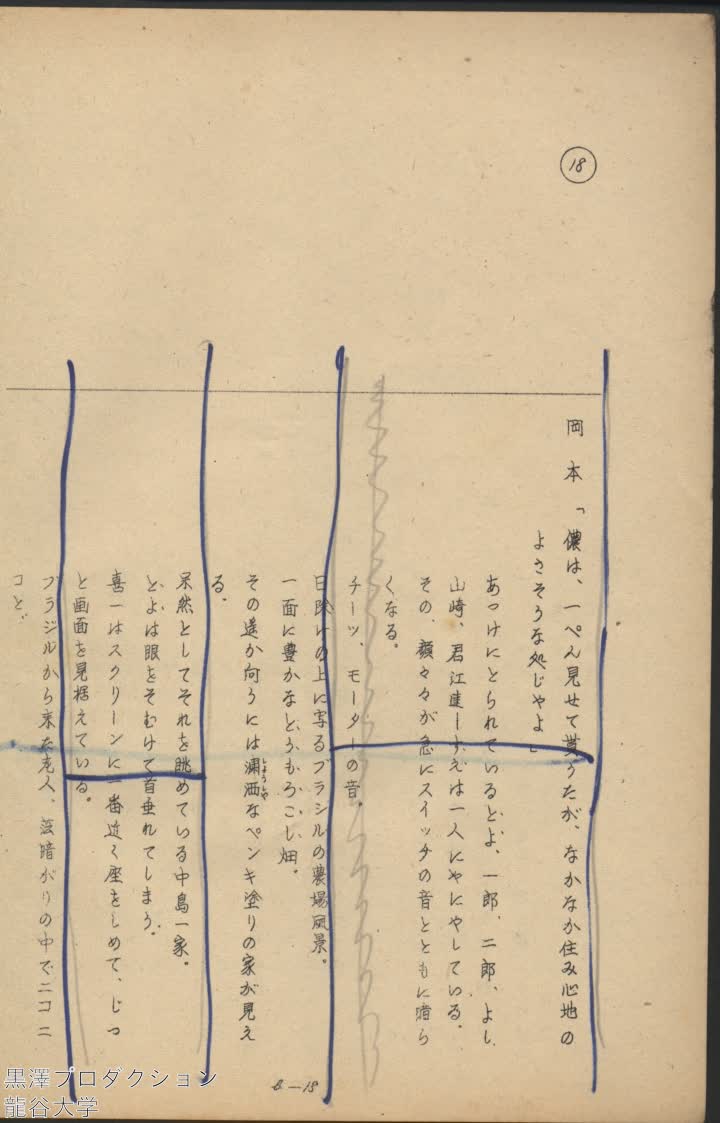 18
岡本「儂は、一ぺん見せて貰うたが、なかなか住み心地の
よさそうな処じゃよ」
あっけにとられているとよ、一郎、二郎、よし
山崎、君江達――すえは一人にやにやしている。
その、顔々々が急にスイッチの音とともに暗ら
くなる。
チーッ、モーターの音。
の上に写るブラジルの農場風景。
一面に豊かなとうもろこし畑。
その遙か向うには瀟洒なペンキ塗りの家が見え
る。
呆然としてそれを眺めている中島一家。
とよは眼をそむけて首垂れてしまう。
喜一はスクリーンに一番近く座をしめて、じっ
と画面を見据えている。
ブラジルから来た老人、薄暗がりの中でニコニ
コと
B—18
黒澤プロダクション
龍谷大学